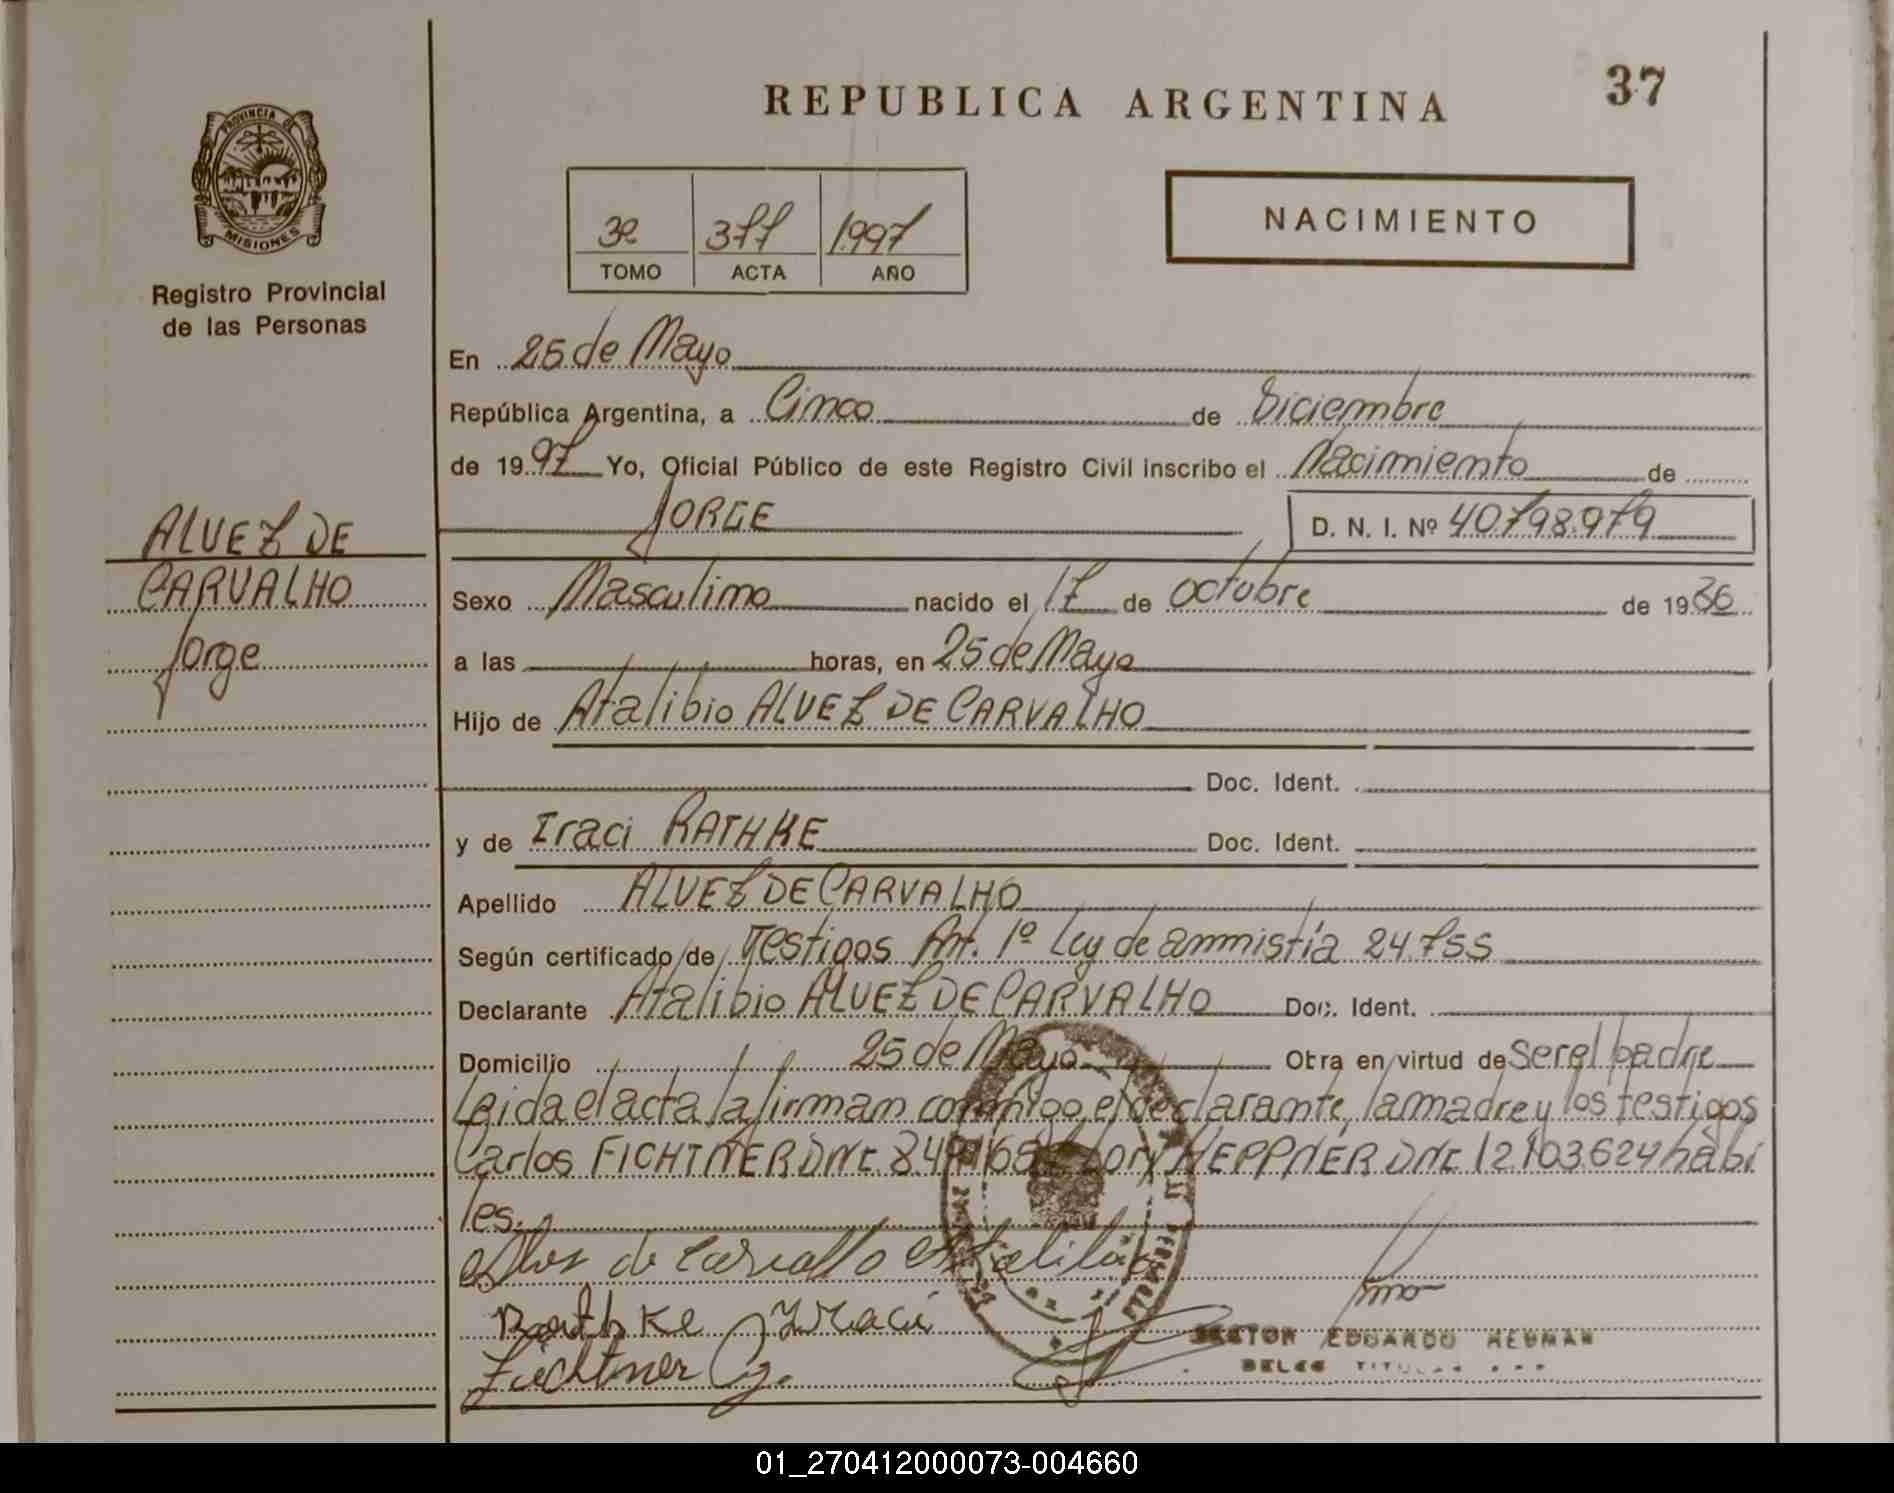 REPUBLICA ARGENTINA
37
PROVINCIA DE
MISIONES
Registro Provincial
de las Personas
3º 377 1997
TOMO ACTA AÑO
NACIMIENTO
En 25 de Mayo
República Argentina, a Cinco de Diciembre
de 1997 Yo, Oficial Público de este Registro Civil inscribo el Nacimiento de
JORGE D. N. I. Nº 40.798.979
ALVEZ DE
CARVALHO
Jorge
Sexo Masculino nacido el 17 de octubre de 1986
a las horas, en 25 de Mayo
Hijo de Atalibio ALVEZ DE CARVALHO
Doc. Ident.
y de Iraci RATHKE Doc. Ident.
Apellido ALVEZ DE CARVALHO
Según certificado de Testigos Art. 1º Ley de amnistía 24.755
Declarante Atalibio ALVEZ DE CARVALHO Doc. Ident.
Domicilio 25 de Mayo Otra en virtud de ser el padre
Leida el acta la firman conmigo el declarante, la madre y los testigos
Carlos FICHTNER DNI. HEPPNER DNI 12103624 hábi
les.
Alves de Carvalho Atalibio
Rathke Iraci
Fichtner C
EDUARDO
01_270412000073-004660